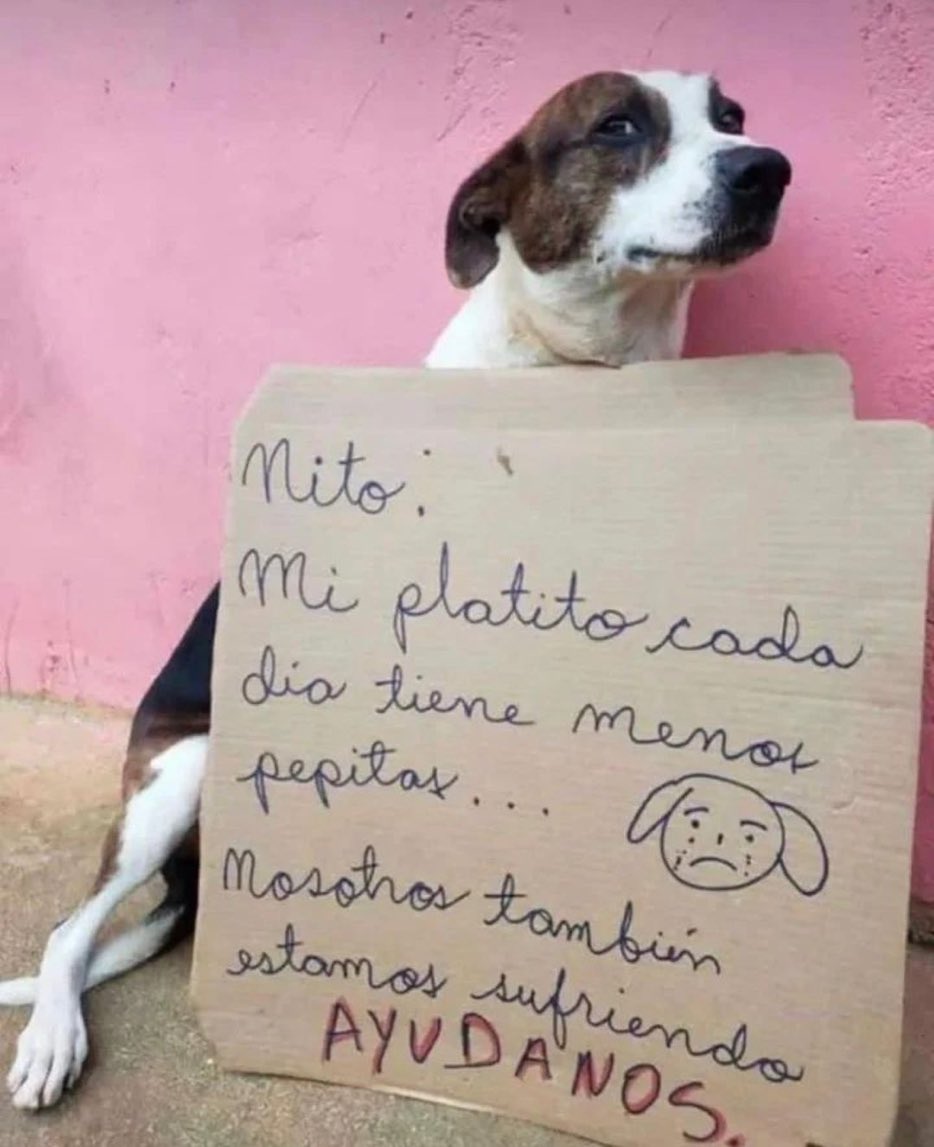 Nito:
Mi platito cada
día tiene menos
pepitas....
Nosotros también
estamos sufriendo
AYUDANOS.